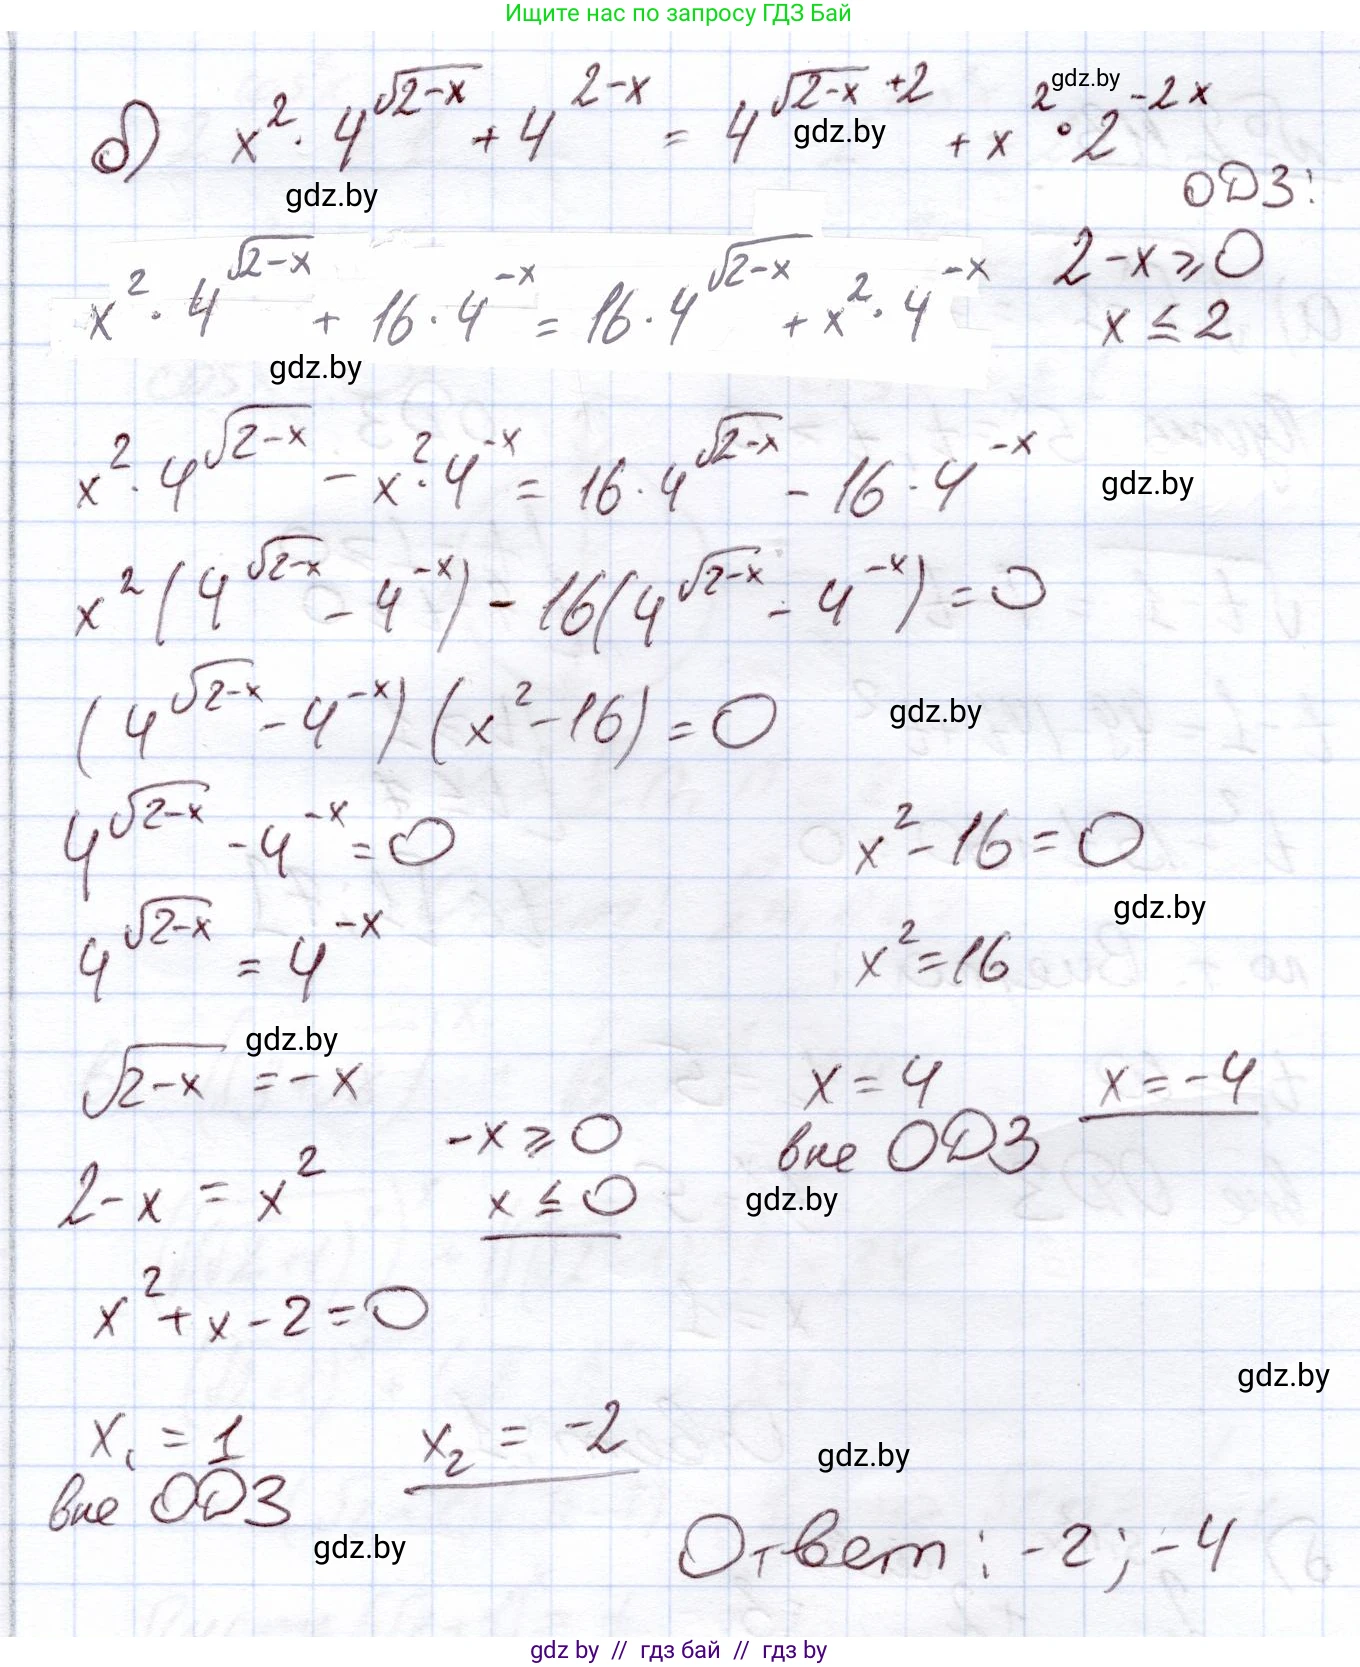 Ищите нас по запросу ГДЗ Бай
б) x² · 4^√(2-x) + 4^(2-x) = 4^(√(2-x) +2) + x² · 2^(-2x)
gdz.by
gdz.by
gdz.by
ОДЗ:
x² · 4^√(2-x) + 16 · 4^(-x) = 16 · 4^√(2-x) + x² · 4^(-x)
2-x ≥ 0
x ≤ 2
gdz.by
x² · 4^√(2-x) - x² · 4^(-x) = 16 · 4^√(2-x) - 16 · 4^(-x)
gdz.by
x² (4^√(2-x) - 4^(-x)) - 16(4^√(2-x) - 4^(-x)) = 0
(4^√(2-x) - 4^(-x)) (x² - 16) = 0
gdz.by
4^√(2-x) - 4^(-x) = 0
x² - 16 = 0
gdz.by
4^√(2-x) = 4^(-x)
x² = 16
gdz.by
√(2-x) = -x
x = 4
x = -4
-x ≥ 0
вне ОДЗ
2-x = x²
x ≤ 0
gdz.by
x² + x - 2 = 0
gdz.by
x₁ = 1
x₂ = -2
gdz.by
вне ОДЗ
gdz.by
Ответ: -2; -4
gdz.by // гдз бай // гдз by